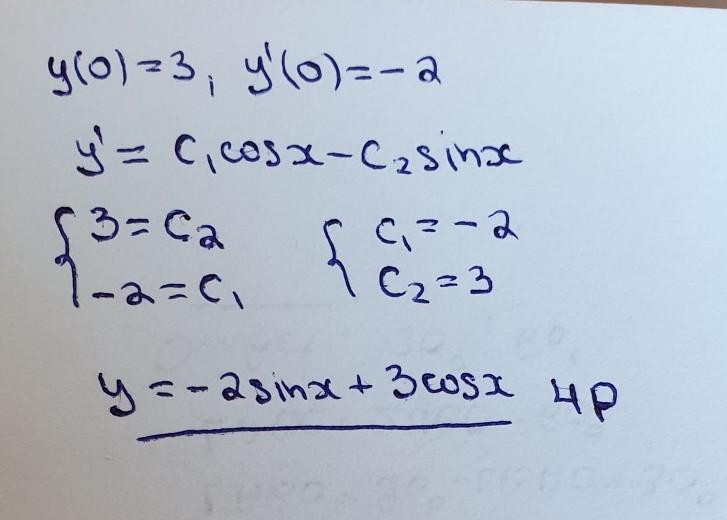 y(0)=3, y'(0)=-2
y'= C₁cosx-C₂sinx
{3=C₂ {C₁=-2
{-2=C₁ {C₂=3
y=-2sinx+3cosx 4p